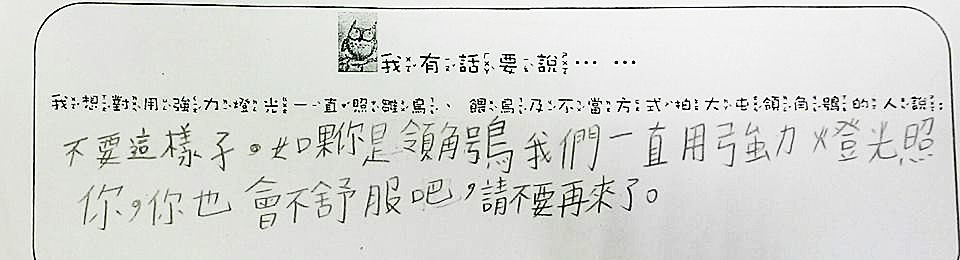 我有話要說… …
我想對用強力燈光一直照雛鳥、餵鳥及不當方式拍大屯領角鴞的人說:
不要這樣子。如果你是領角鴞我們一直用強力燈光照
你,你也會不舒服吧,請不要再來了。